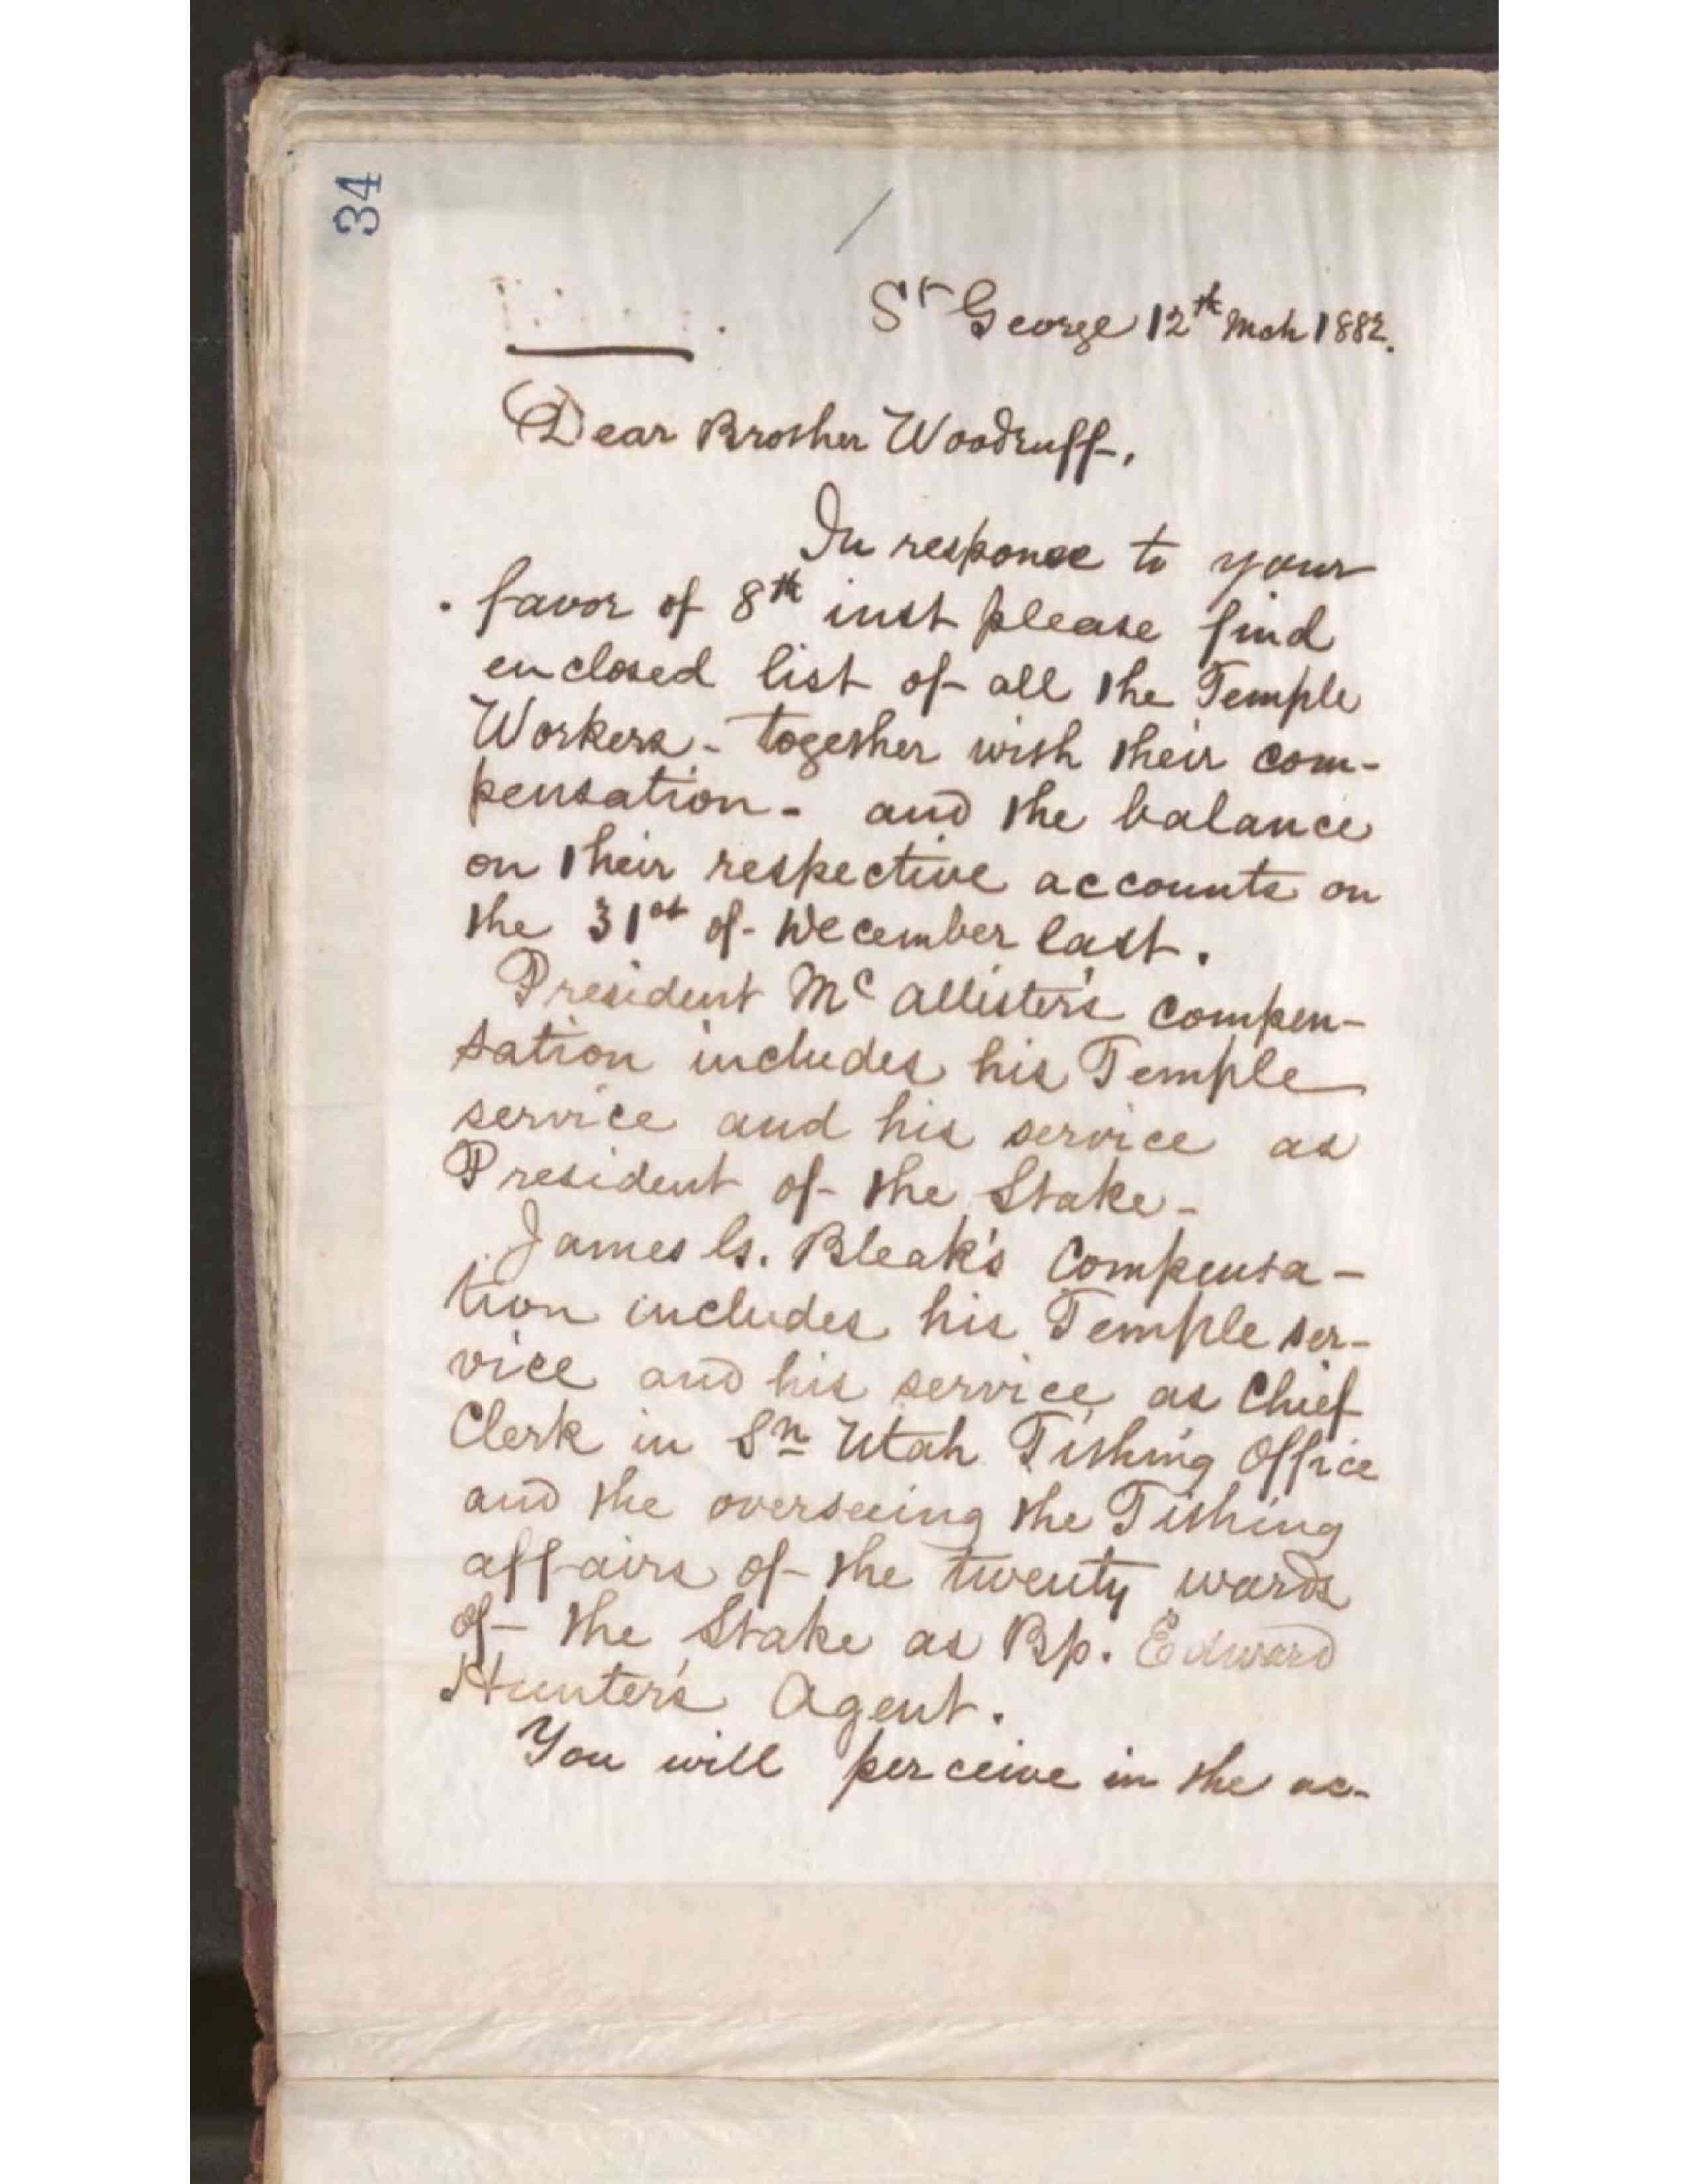 34
St George 12th Mch 1882.
Dear Brother Woodruff,
In response to your
favor of 8th inst please find
enclosed list of all the Temple
Workers - together with their com-
pensation - and the balance
on their respective accounts on
the 31st of December last.
President McAllister's compen-
sation includes his Temple
service and his service as
President of the Stake -
James G. Bleak's Compensa-
tion includes his Temple ser-
vice and his service as Chief
Clerk in Sn Utah Tithing Office
and the overseeing the Tithing
affairs of the twenty wards
of the Stake as Bp. Edward
Hunter's Agent.
You will perceive in the ac-